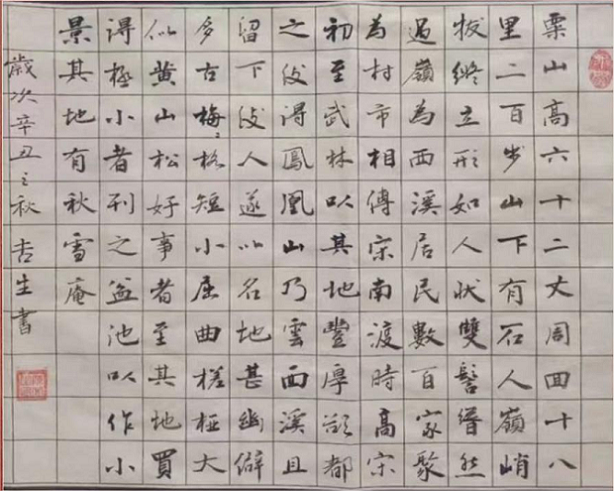 粟山高六十二丈周回十八
里二百步山下有石人嶺峭
拔縱立形如人狀雙髻聳然
過嶺為西溪居民數百家聚
為村市相傳宋南渡時高宗
初至武林以其地豐厚欲都
之後得鳳凰山乃雲西溪且
留下後人遂以名地甚幽僻
多古梅〻格短小屈曲槎椏大
似黄山松好事者至其地買
得極小者列之盆池以作小
景其地有秋雪庵
歲次辛丑之秋 生書